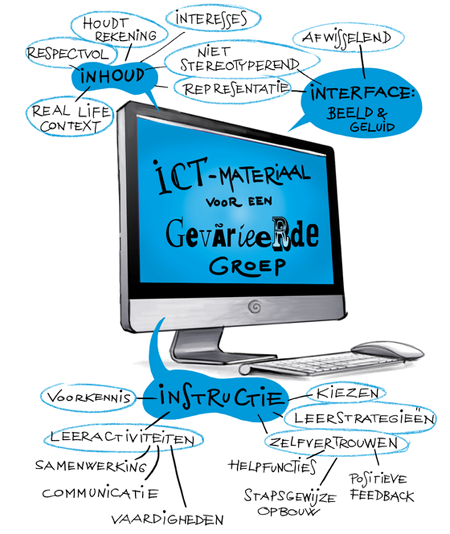 HOUDT
REKENING
INTERESSES
RESPECTVOL
INHOUD
NIET
STEREOTYPEREND
REPRESENTATIE
REAL LIFE
CONTEXT
AFWISSELEND
INTERFACE:
BEELD &
GELUID
ICT-MATERIAAL
VOOR EEN
GEVARIEERDE
GROEP
VOORKENNIS
INSTRUCTIE
KIEZEN
LEERSTRATEGIEËN
LEERACTIVITEITEN
ZELFVERTROUWEN
SAMENWERKING
COMMUNICATIE
VAARDIGHEDEN
HELPFUNCTIES
STAPSGEWIJZE
OPBOUW
POSITIEVE
FEEDBACK